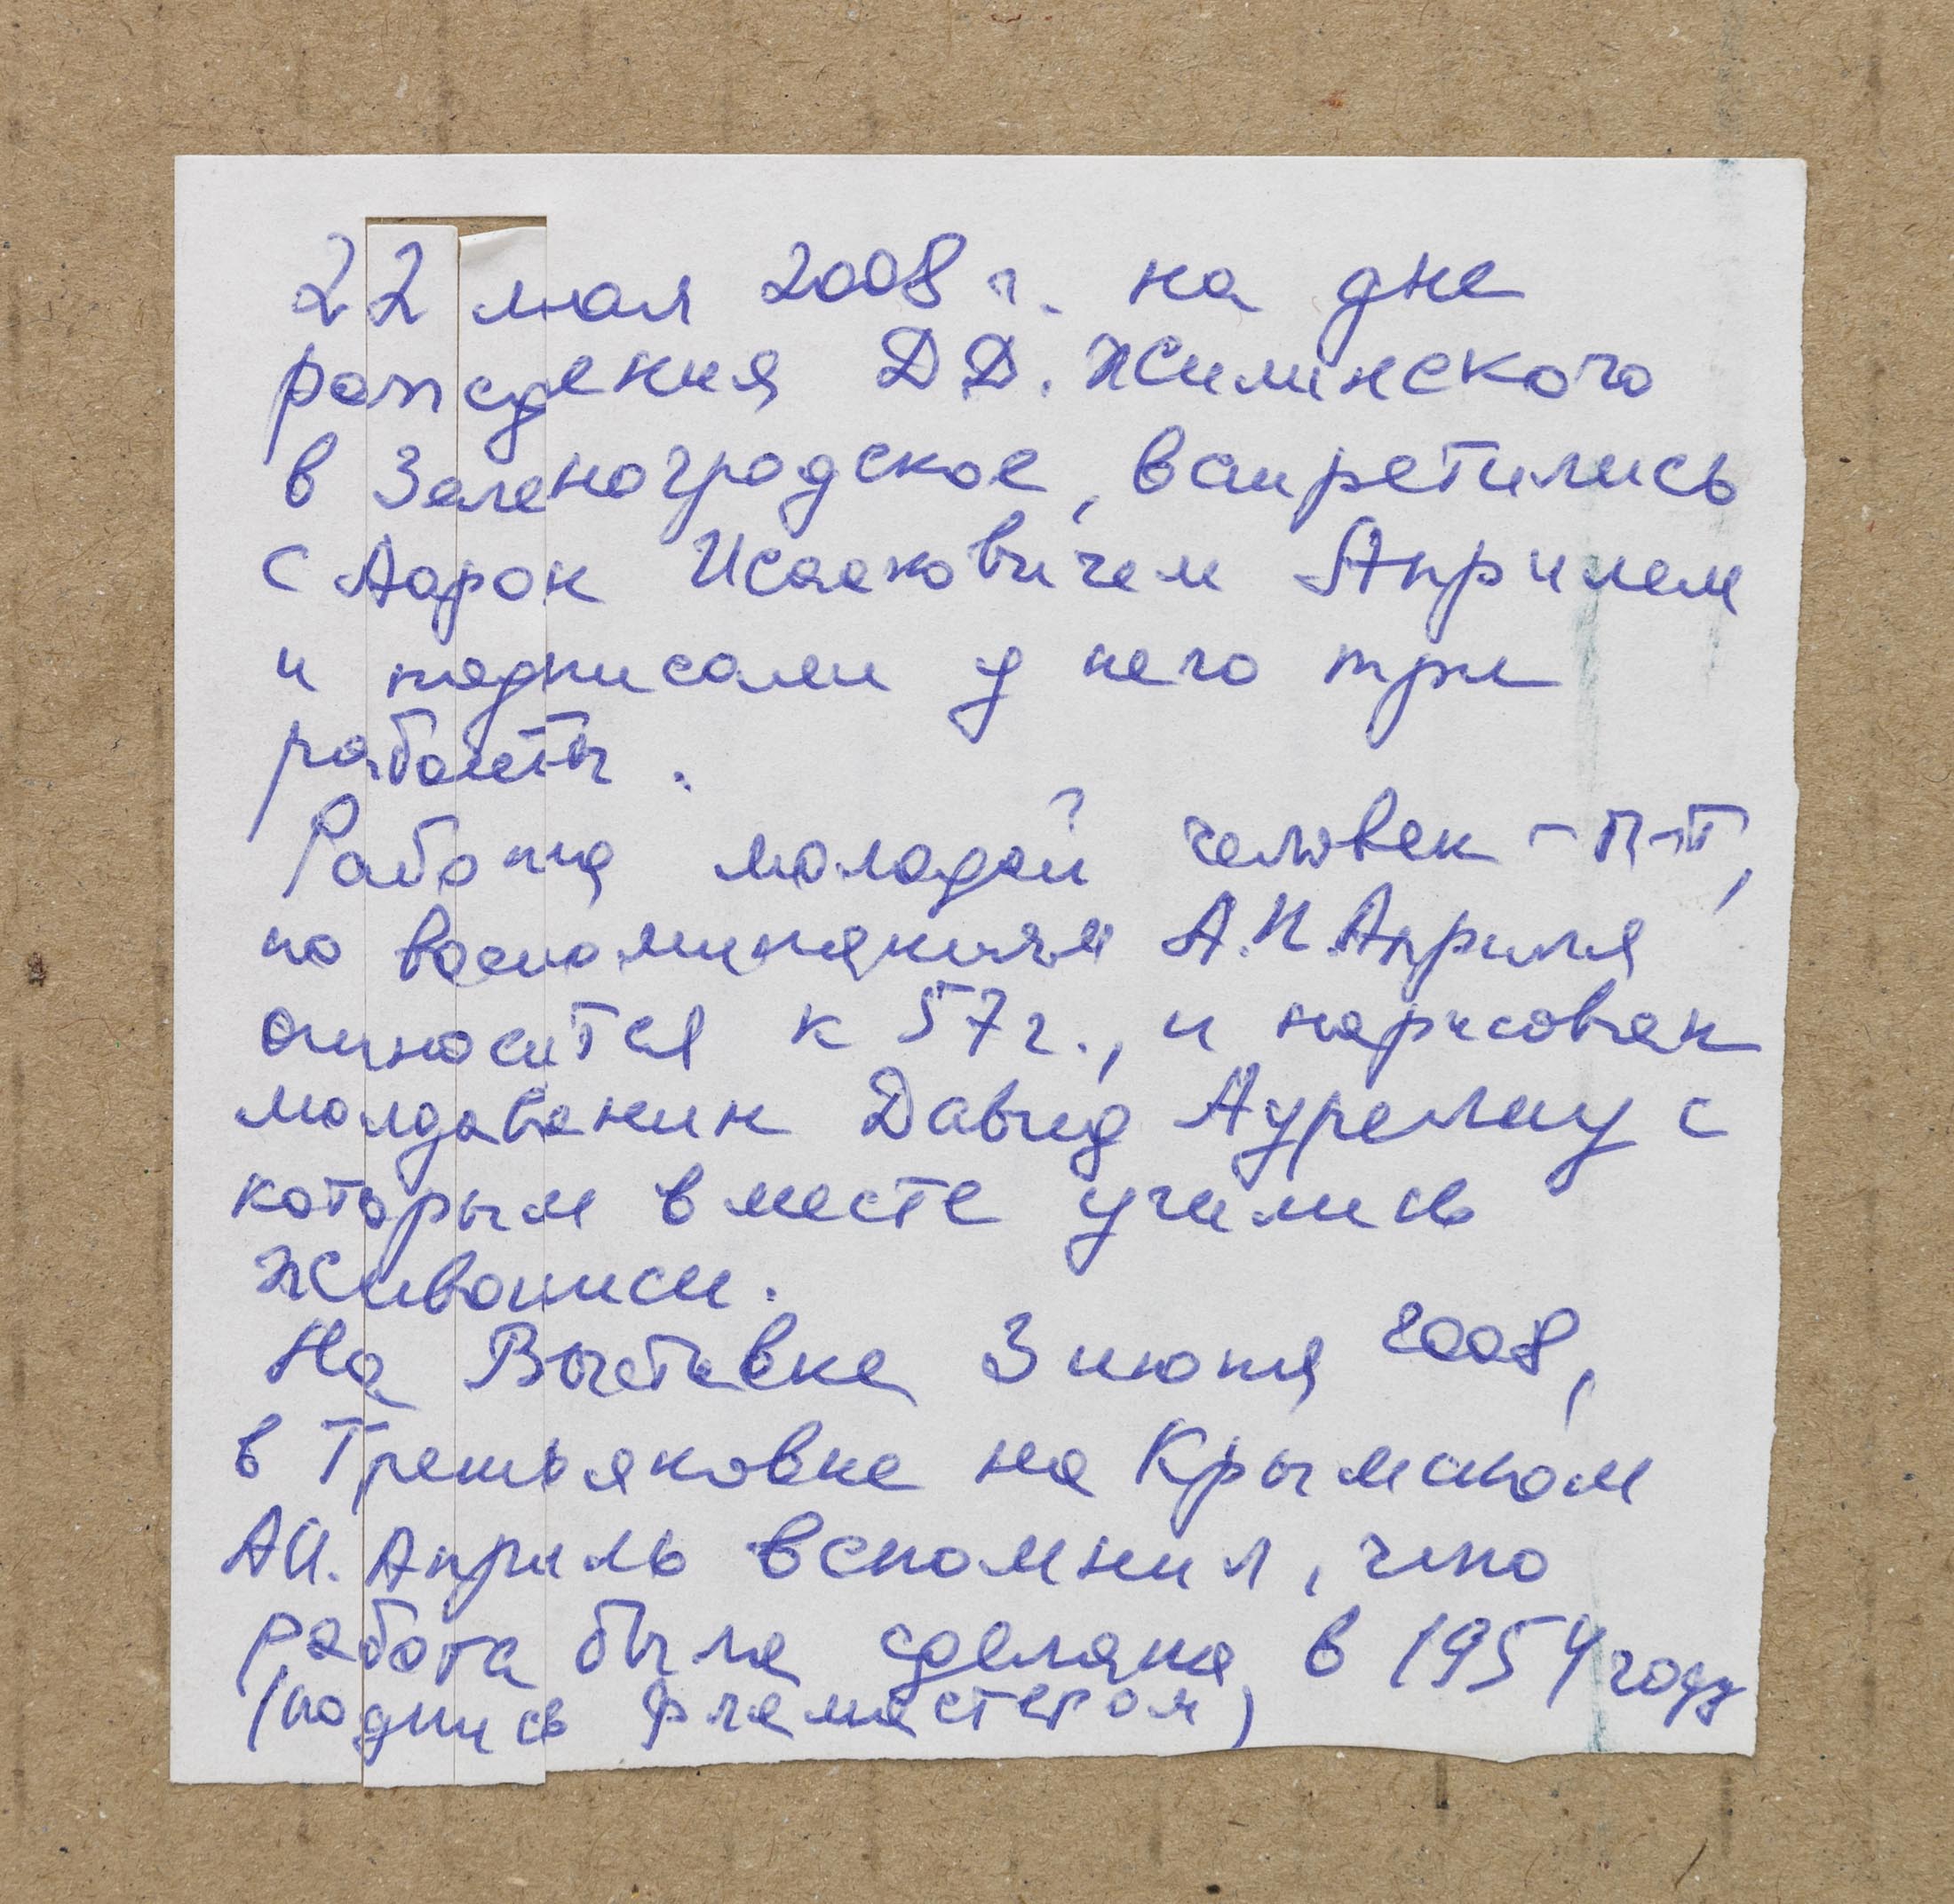 22 мая 2008 г. на дне
рождения Д.Д. Жилинского
в Зеленоградское, встретились
с Аарон Исааковичем Априлем
и подписали у него три
работы.
Работа молодой человек - п-т,
по воспоминаниям А.И. Априля
относится к 57 г., и нарисован
молдаванин Давид Аурелиу с
которым вместе учились
живописи.
На Выставке 3 июня 2008,
в Третьяковке на Крымском
А.И. Априль вспомнил, что
работа была сделана в 1954 году
(подпись фламастером)